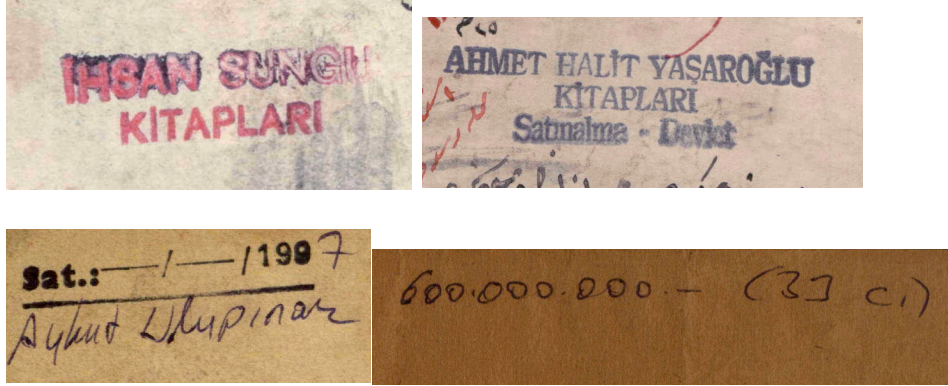 İHSAN SUNGU
KİTAPLARI
AHMET HALİT YAŞAROĞLU
KİTAPLARI
Satınalma - Devlet
Sat.: — / — / 1997
Aykut Ulupınar
600.000.000.- (33 ci)